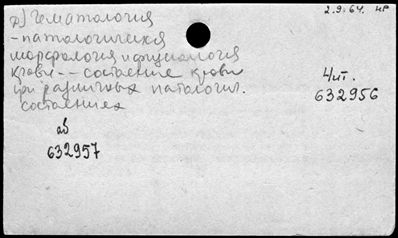 д) Гематология
2.9.64. нр
- патологическая
морфология и физиология
крови -- состояние крови
при различных патологич.
состояниях
4/ит.
632956
аб
632957